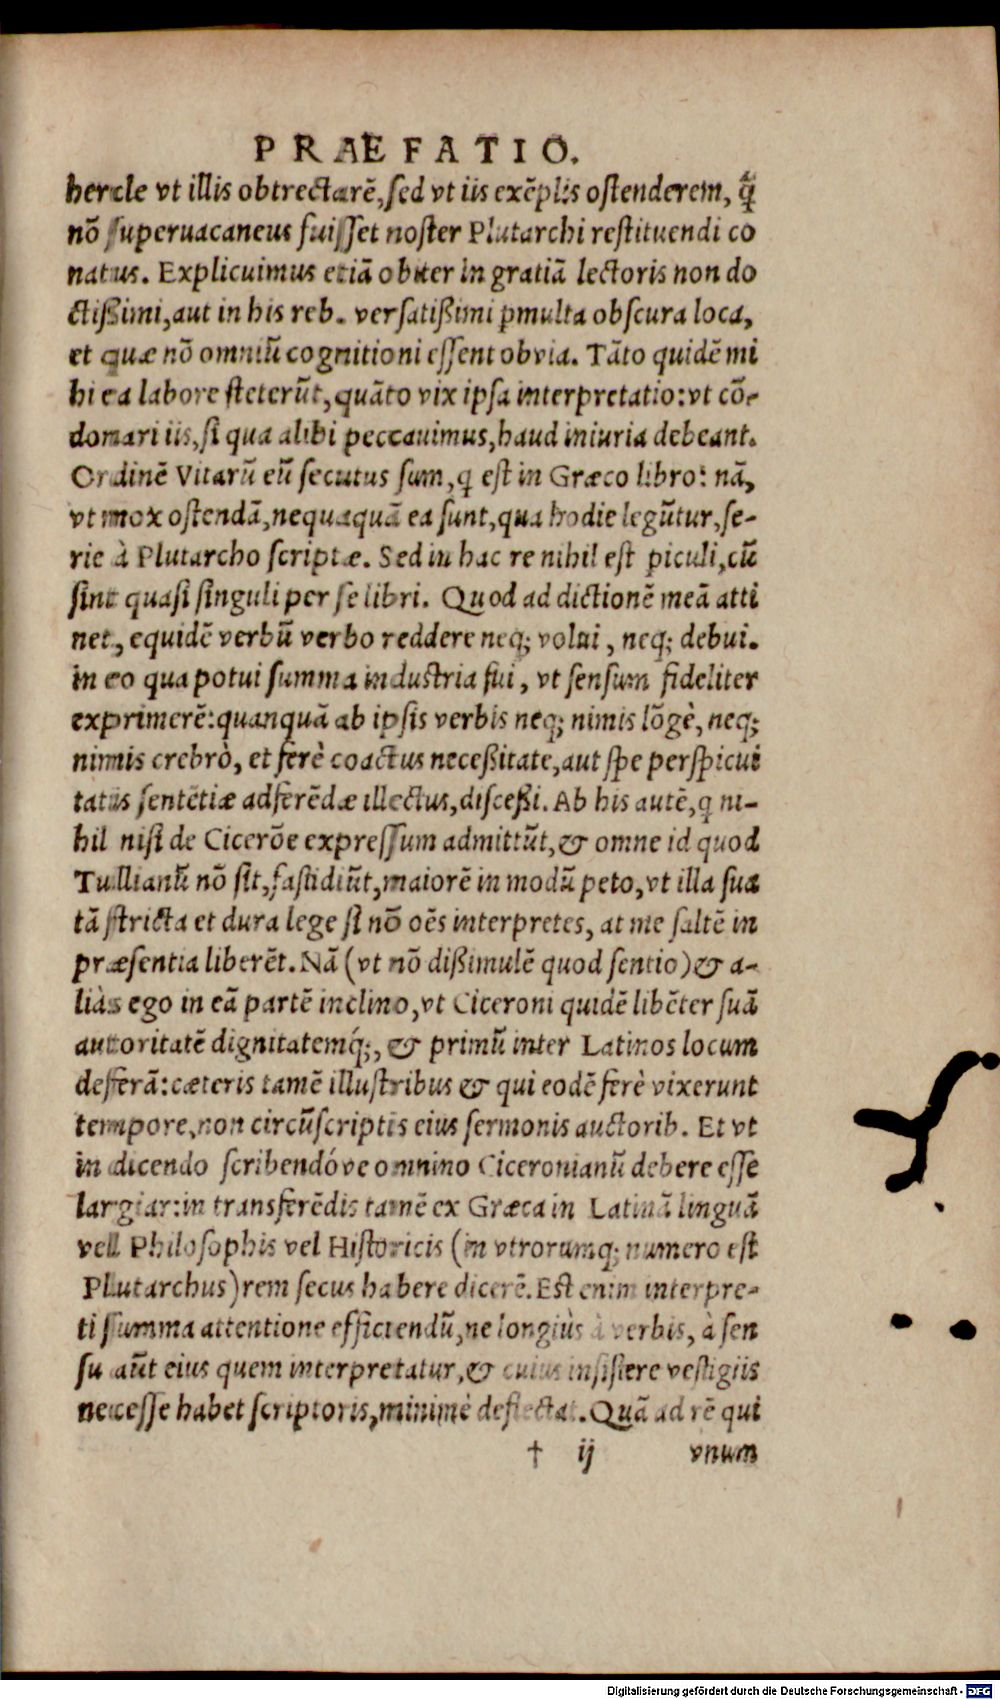 PRAEFATIO.
hercle vt illis obtrectarē, sed vt iis exēplis ostenderem, q̃
nō superuacaneus fuisset noster Plutarchi restituendi co
natus. Explicuimus etiā obiter in gratiā lectoris non do
ctißimi, aut in his reb. versatißimi ꝑmulta obscura loca,
et quæ nō omniū cognitioni essent obvia. Tāto quidē mi
hi ea labore steterūt, quāto vix ipsa interpretatio: vt cō-
donari iis, si qua alibi peccauimus, haud iniuria debeant.
Ordinē Vitarū eū secutus sum, q̃ est in Græco libro: nā,
vt mox ostendā, nequaquā ea sunt, qua hodie legūtur, se-
rie à Plutarcho scriptæ. Sed in hac re nihil est ꝑiculi, cū
sint quasi singuli per se libri. Quod ad dictionē meā atti
net, equidē verbū verbo reddere neq; volui, neq; debui.
in eo qua potui summa industria fui, vt sensum fideliter
exprimerē: quanquā ab ipsis verbis neq; nimis lōgè, neq;
nimis crebrò, et ferè coactus neceßitate, aut spe perspicui
tatis sentētiæ adferēdæ illectus, disceßi. Ab his autē, q̃ ni-
hil nisi de Cicerōe expressum admittūt, & omne id quod
Tullianū nō sit, fastidiūt, maiorē in modū peto, vt illa sua
tā stricta et dura lege si nō oēs interpretes, at me saltē in
præsentia liberēt. Nā (vt nō dißimulē quod sentio) & a-
liàs ego in eā partē inclino, vt Ciceroni quidē libēter suā
autoritatē dignitatemq́;, & primū inter Latinos locum
defferā: cæteris tamē illustribus & qui eodē ferè vixerunt
tempore, non circūscriptis eius sermonis auctorib. Et vt
in dicendo scribendóve omnino Ciceronianū debere esse
largiar: in transferēdis tamē ex Græca in Latinā linguā
vel Philosophis vel Historicis (in vtrorumq; numero est
Plutarchus) rem secus habere dicerē. Est enim interpre-
ti summa attentione efficiendū, ne longiùs à verbis, à sen
su aūt eius quem interpretatur, & cuius insistere vestigiis
necesse habet scriptoris, minimè deflectat. Quā ad rē qui
† ij vnum
Digitalisierung gefördert durch die Deutsche Forschungsgemeinschaft - DFG